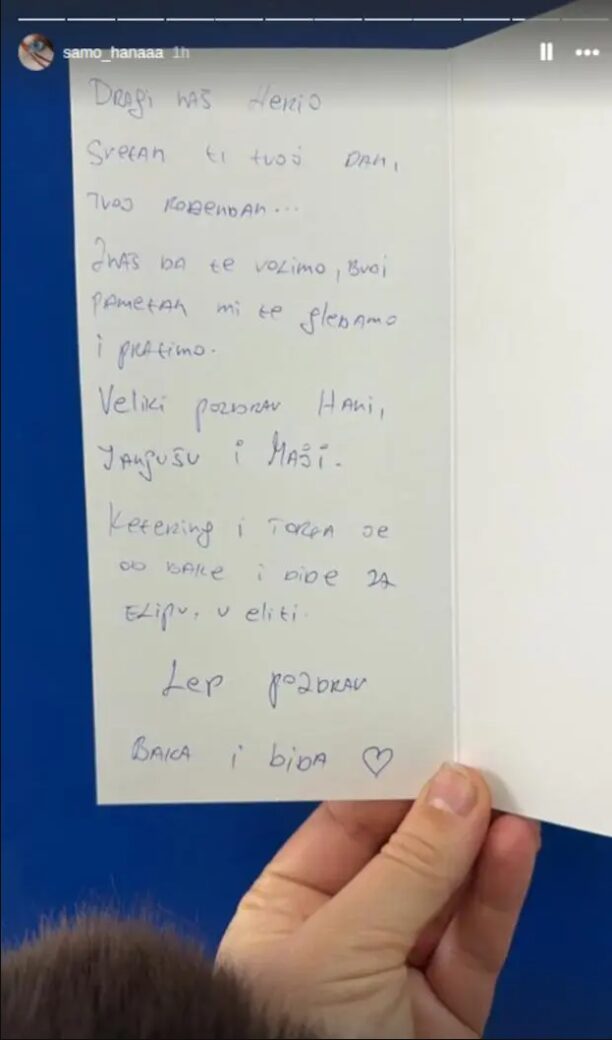 samo_hanaaa 1h
Dragi naš Henio
Sretan ti tvoj dan,
tvoj rođendan...
Znaš da te volimo, budi
pametan mi te gledamo
i pratimo.
Veliki pozdrav Hani,
Janjušu i Maši.
Ketering i torta je
od bake i dide za
ekipu, u eliti.
Lep pozdrav
Baka i dida ♡